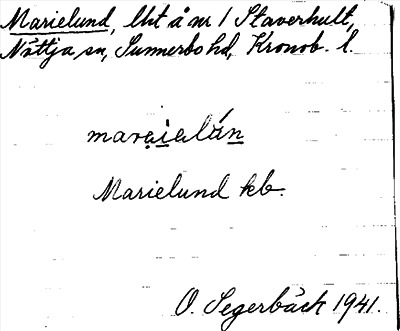 Marielund, lht å nr 1 Staverhult,
Nöttja sn, Sunnerbo hd, Kronob. l.
marialún
Marielund kb.
O. Segerbäck 1941.